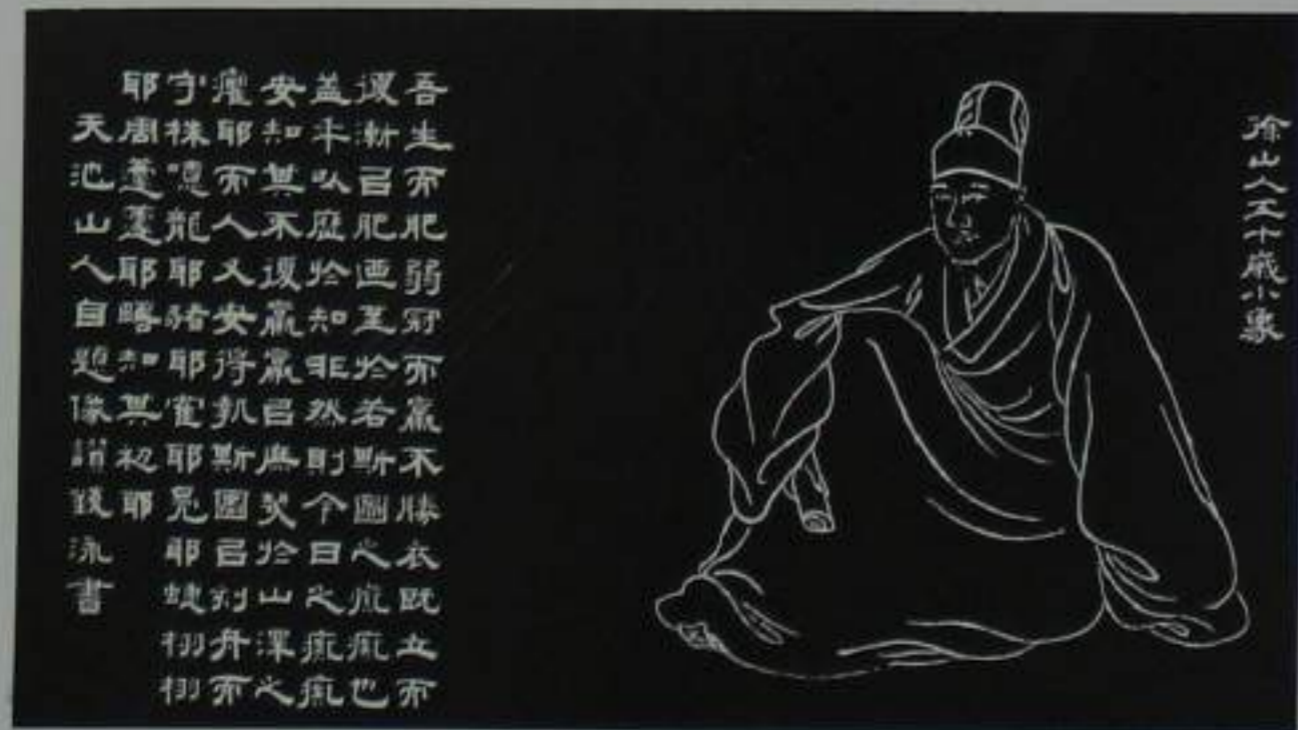 徐山人五十歲小象
吾生而肥弱冠而羸不勝衣既立而
復漸㠯肥迺至於若斯圖之痴痴也
蓋年以歷於知非然則今日之痴痴
安知其不復羸羸㠯庶幾於山澤之
癯耶而人又安得執斯圖㠯刻舟而
守株噫龍耶豬耶隺耶鳧耶蜨栩栩
耶周蘧蘧耶疇知其初耶
天池山人自題像讚錢泳書